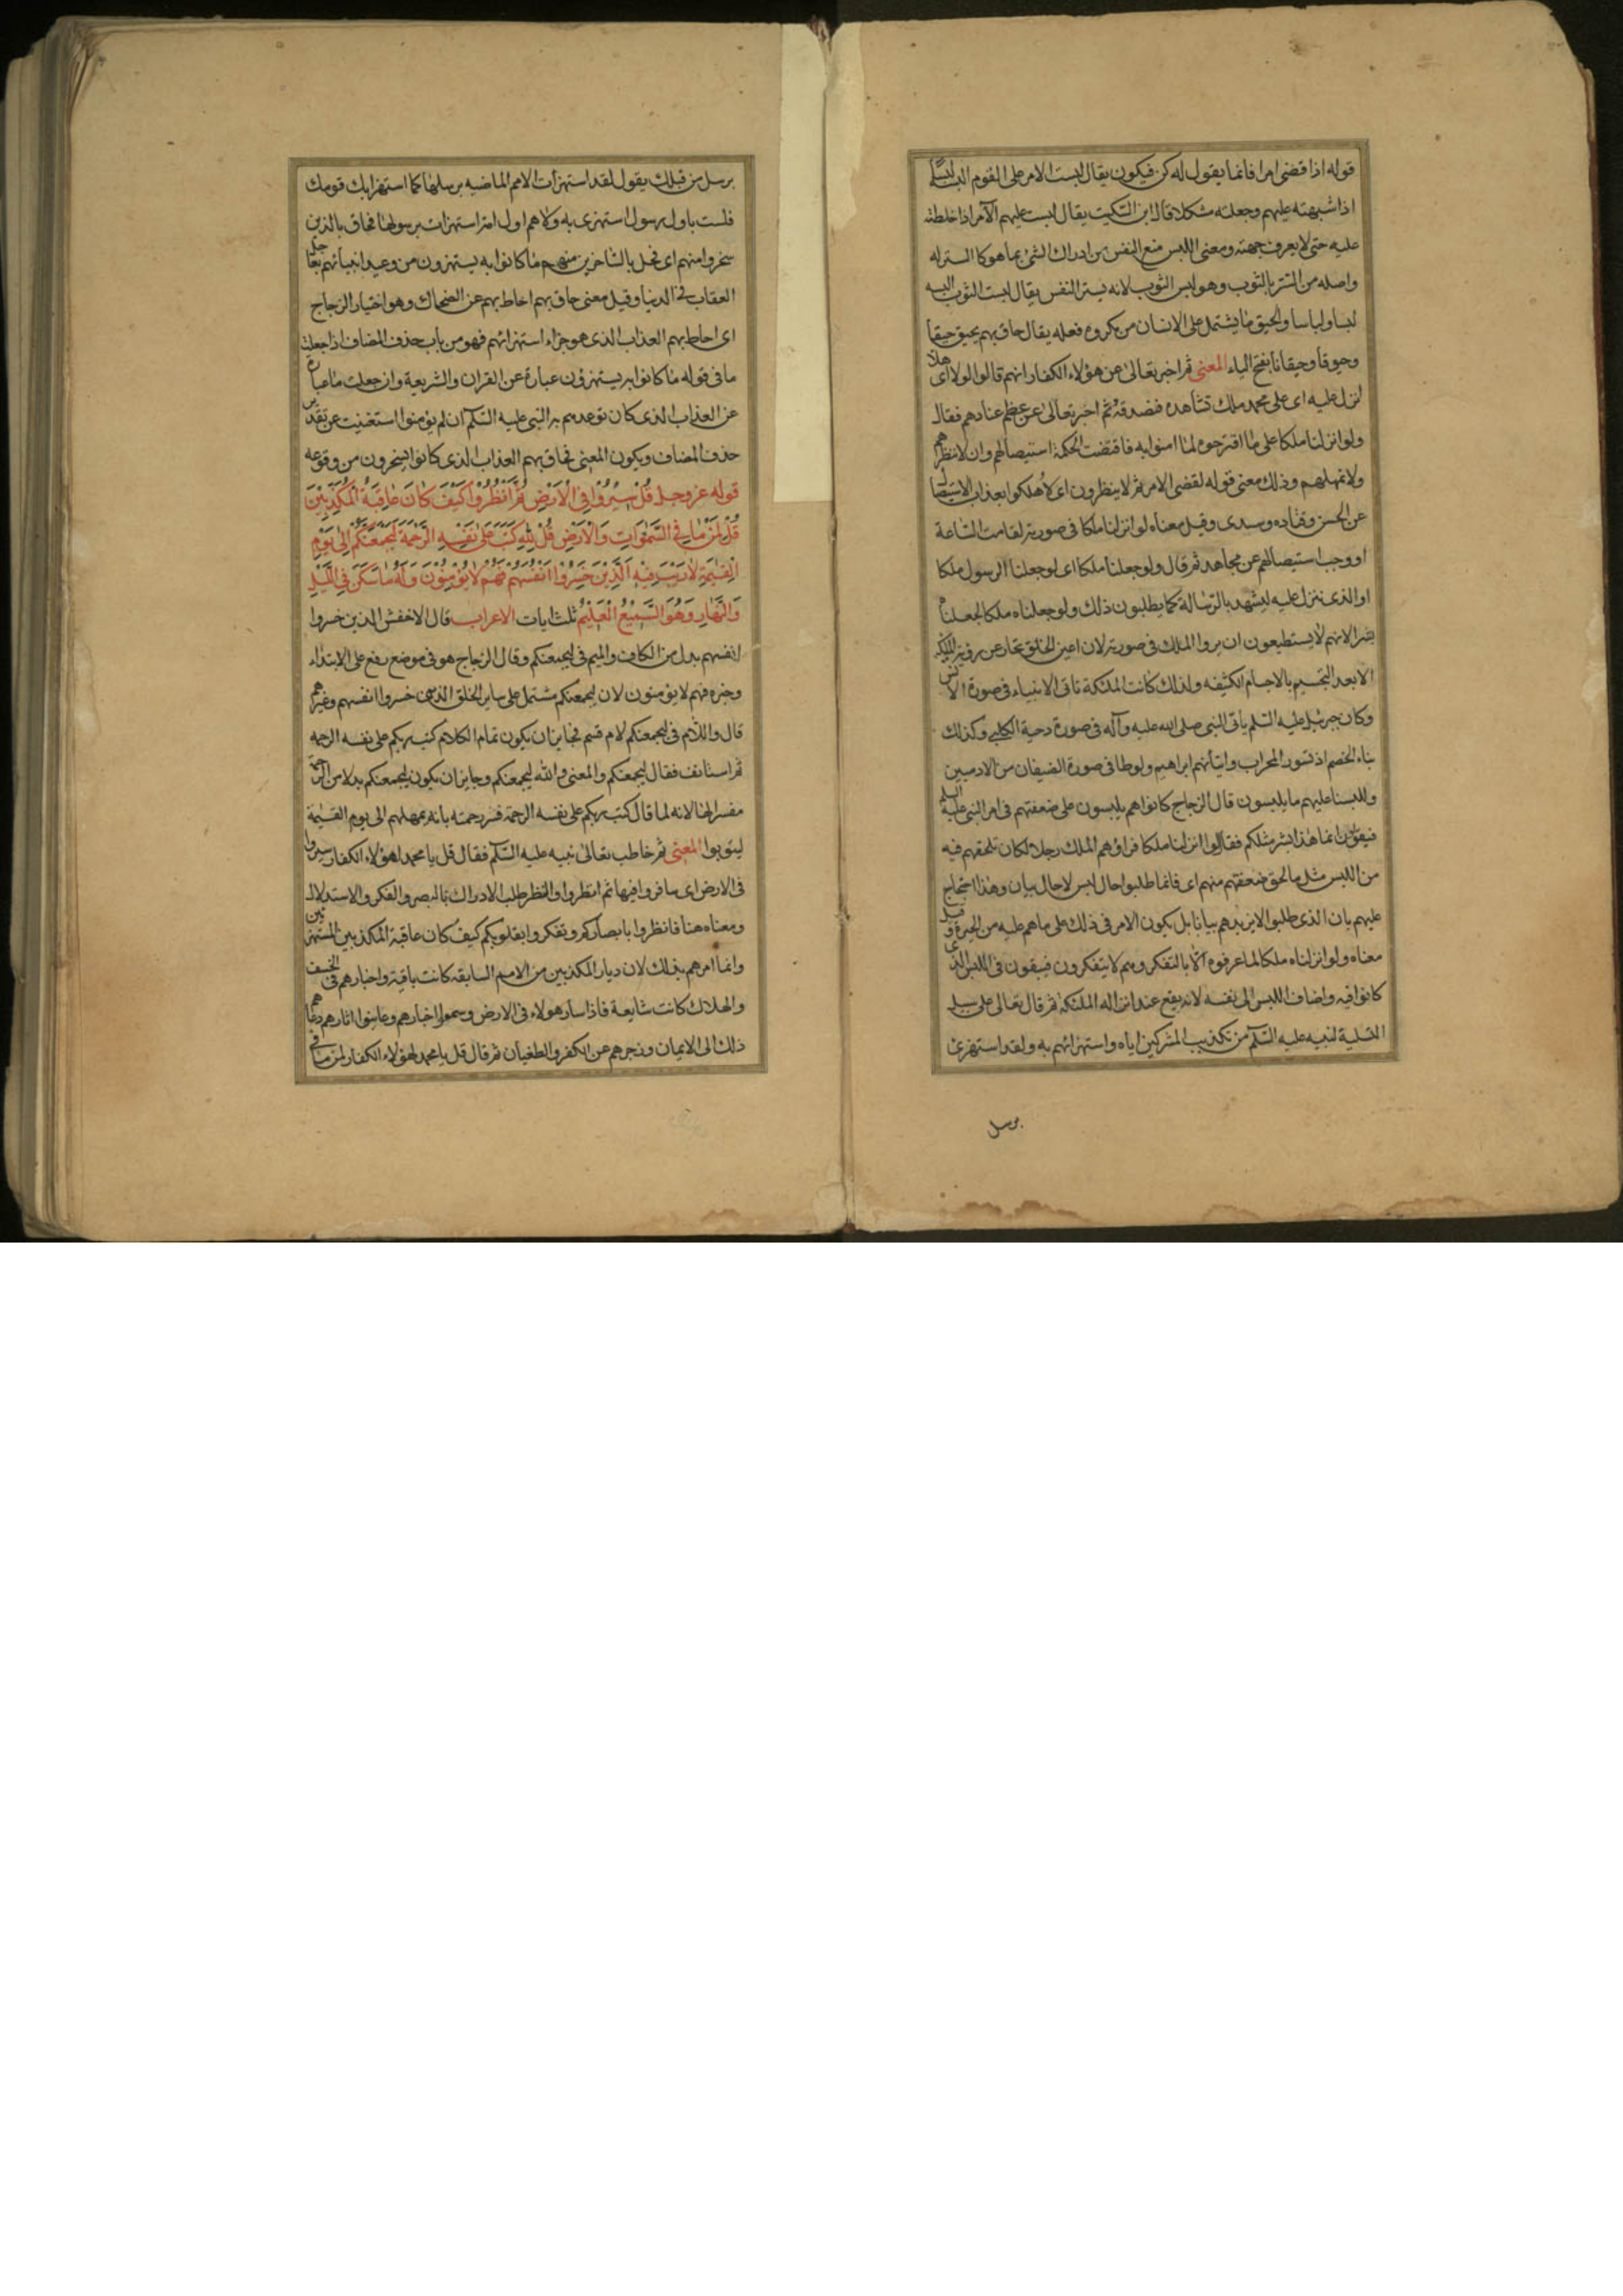 قوله اذا قضى امرا فانما يقول له كن فيكون يقال لبست الامر على القوم البسه لبسا
اذا شبهته عليهم وجعلته مشكلا قال ابن السكيت يقال لبست عليهم الامر اذا خلطته
عليه حتى لا يعرف جهته ومعنى اللبس منع النفس من ادراك الشئ بما هو كالستر له
واصله من الستر بالثوب وهو لبس الثوب لانه يستر النفس يقال لبست الثوب البسه
لبسا ولباسا والحيق ما يشتمل على الانسان من مكروه فعله يقال حاق بهم يحيق حيقا
وحيوقا وحيقانا بفتح الياء المعنى ثم اخبر تعالى عن هؤلاء الكفار انهم قالوا لولا اى هلا
انزل عليه اى على محمد ملك نشاهده فنصدقه ثم اخبر تعالى عن عظم عنادهم فقال
ولو انزلنا ملكا على ما اقترحوه لما امنوا به فاقتضت الحكمة استيصالهم وان لا ينظرهم
ولا يمهلهم وذلك معنى قوله لقضى الامر ثم لا ينظرون اى لاهلكوا بعذاب الاستيصال
عن الحسن وقتاده وسدى وقيل معناه لو انزلنا ملكا فى صورته لقامت الساعة
او وجب استيصالهم عن مجاهد ثم قال ولو جعلناه ملكا اى لو جعلنا الرسول ملكا
او الذى ننزل عليه ليشهد بالرسالة كما يطلبون ذلك ولو جعلناه ملكا لجعلناه
بشرا لانهم لا يستطيعون ان يروا الملك فى صورته لان اعين الخلق تحار عن رؤية الملئكة
الا بعد التجسيم بالاجسام الكثيفه ولذلك كانت الملئكة تاتى الانبياء فى صورة الانس
وكان جبرئيل عليه السلم يأتى النبى صلى الله عليه وآله فى صورة دحية الكلبي وكذلك
نباء الخصم اذ تسور المحراب واتيانهم ابراهيم ولوطا فى صورة الضيفان من الادميين
وللبسنا عليهم ما يلبسون قال الزجاج كانوا هم يلبسون على ضعفتهم فى امر النبى عليه السلم
فيقولون انما هذا بشر مثلكم فقال لو انزلنا ملكا فراوهم الملك رجلا لكان تلحقهم فيه
من اللبس مثل ما لحق ضعفتهم منهم اى فانما طلبوا حال لبس لا حال بيان وهذا احتجاج
عليهم بان الذى طلبوا لا يزيدهم بيانا بل يكون الامر فى ذلك على ما هم عليه من الحيرة وقيل
معناه ولو انزلناه ملكا لما عرفوه الا بالتفكر وهم لا يتفكرون فيبقون فى اللبس الذى
كانوا فيه واضاف اللبس الى نفسه لانه يقع عند انزاله الملئكة ثم قال تعالى على سبيل
التسلية لنبيه عليه السلم من تكذيب المشركين اياه واستهزائهم به ولقد استهزئ
برسل
برسل من قبلك يقول لقد استهزأت الامم الماضيه برسلها كما استهزا بك قومك
فلست باول رسول استهزى به ولا هم اول امة استهزات برسولها فحاق بالذين
سخروا منهم اى فحل بالساخرين منهم ما كانوا به يستهزون من وعيد انبيائهم بعاجل
العقاب فى الدنيا وقيل معنى حاق بهم احاط بهم عن الضحاك وهو اختيار الزجاج
اى احاط بهم العذاب الذى هو جزاء استهزائهم فهو من باب حذف المضاف اذا جعلت
ما فى قوله ما كانوا به يستهزؤن عبارة عن القران والشريعة وان جعلت ما عبارة
عن العذاب الذى كان توعدهم به النبى عليه السلم ان لم يؤمنوا استغنيت عن تقدير
حذف المضاف ويكون المعنى فحاق بهم العذاب الذى كانوا يسخرون من وقوعه
قوله عز وجل قُلْ سِيرُوْا فِى الْاَرْضِ ثُمَّ انْظُرُوْا كَيْفَ كَانَ عَاقِبَةُ الْمُكَذِّبِيْنَ
قُلْ لِمَنْ مَا فِى السَّمٰوَاتِ وَالْاَرْضِ قُلْ لِلّٰهِ كَتَبَ عَلٰى نَفْسِهِ الرَّحْمَةَ لَيَجْمَعَنَّكُمْ اِلٰى يَوْمِ
الْقِيٰمَةِ لَا رَيْبَ فِيْهِ اَلَّذِيْنَ خَسِرُوْا اَنْفُسَهُمْ فَهُمْ لَا يُؤْمِنُوْنَ وَلَهُ مَا سَكَنَ فِى اللَّيْلِ
وَالنَّهَارِ وَهُوَ السَّمِيْعُ الْعَلِيْمُ ثلث ايات الاعراب قال الاخفش الذين خسروا
انفسهم بدل من الكاف والميم فى ليجمعنكم وقال الزجاج هو فى موضع رفع على الابتداء
وخبره فهم لا يؤمنون لان ليجمعنكم مشتمل على ساير الخلق الذين خسروا انفسهم وغيرهم
قال واللام فى ليجمعنكم لام قسم فجايز ان يكون تمام الكلام كتب ربكم على نفسه الرحمه
ثم استانف فقال ليجمعنكم والمعنى والله ليجمعنكم وجايز ان يكون ليجمعنكم بدلا من الرحمة
مفسرا لها لانه لما قال كتب ربكم على نفسه الرحمة فسر رحمته بانه يمهلهم الى يوم القيمة
ليتوبوا المعنى ثم خاطب تعالى نبيه عليه السلم فقال قل يا محمد لهؤلاء الكفار سيروا
فى الارض اى سافروا فيها ثم انظروا والنظر طلب الادراك بالبصر والفكر والاستدلال
ومعناه هنا فانظروا بابصاركم وتفكروا بقلوبكم كيف كان عاقبة المكذبين المستهزئين
وانما امرهم بذلك لان ديار المكذبين من الامم السابقه كانت باقية واخبارهم فى الخسف
والهلاك كانت شايعة فاذا سار هولاء فى الارض وسمعوا اخبارهم وعاينوا اثارهم دعاهم
ذلك الى الايمان وزجرهم عن الكفر والطغيان ثم قال قل يا محمد لهؤلاء الكفار لمن ما فى